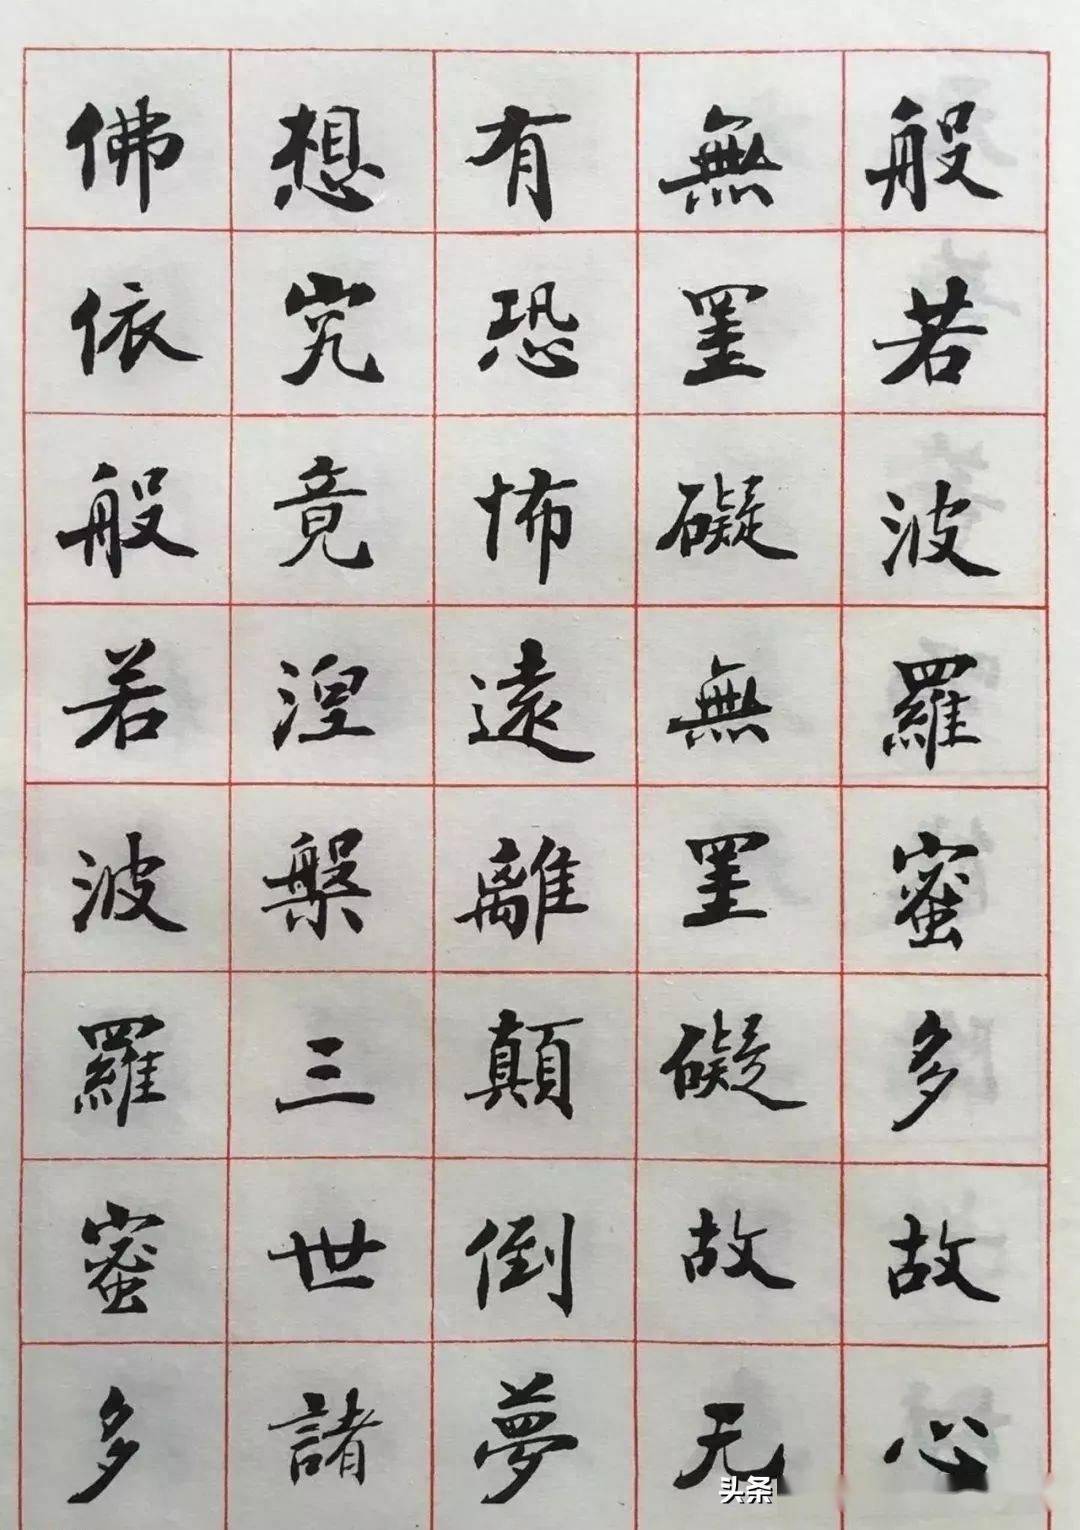 般若波羅蜜多故心
無罣礙無罣礙故无
有恐怖遠離顛倒夢
想究竟涅槃三世諸
佛依般若波羅蜜多
头条